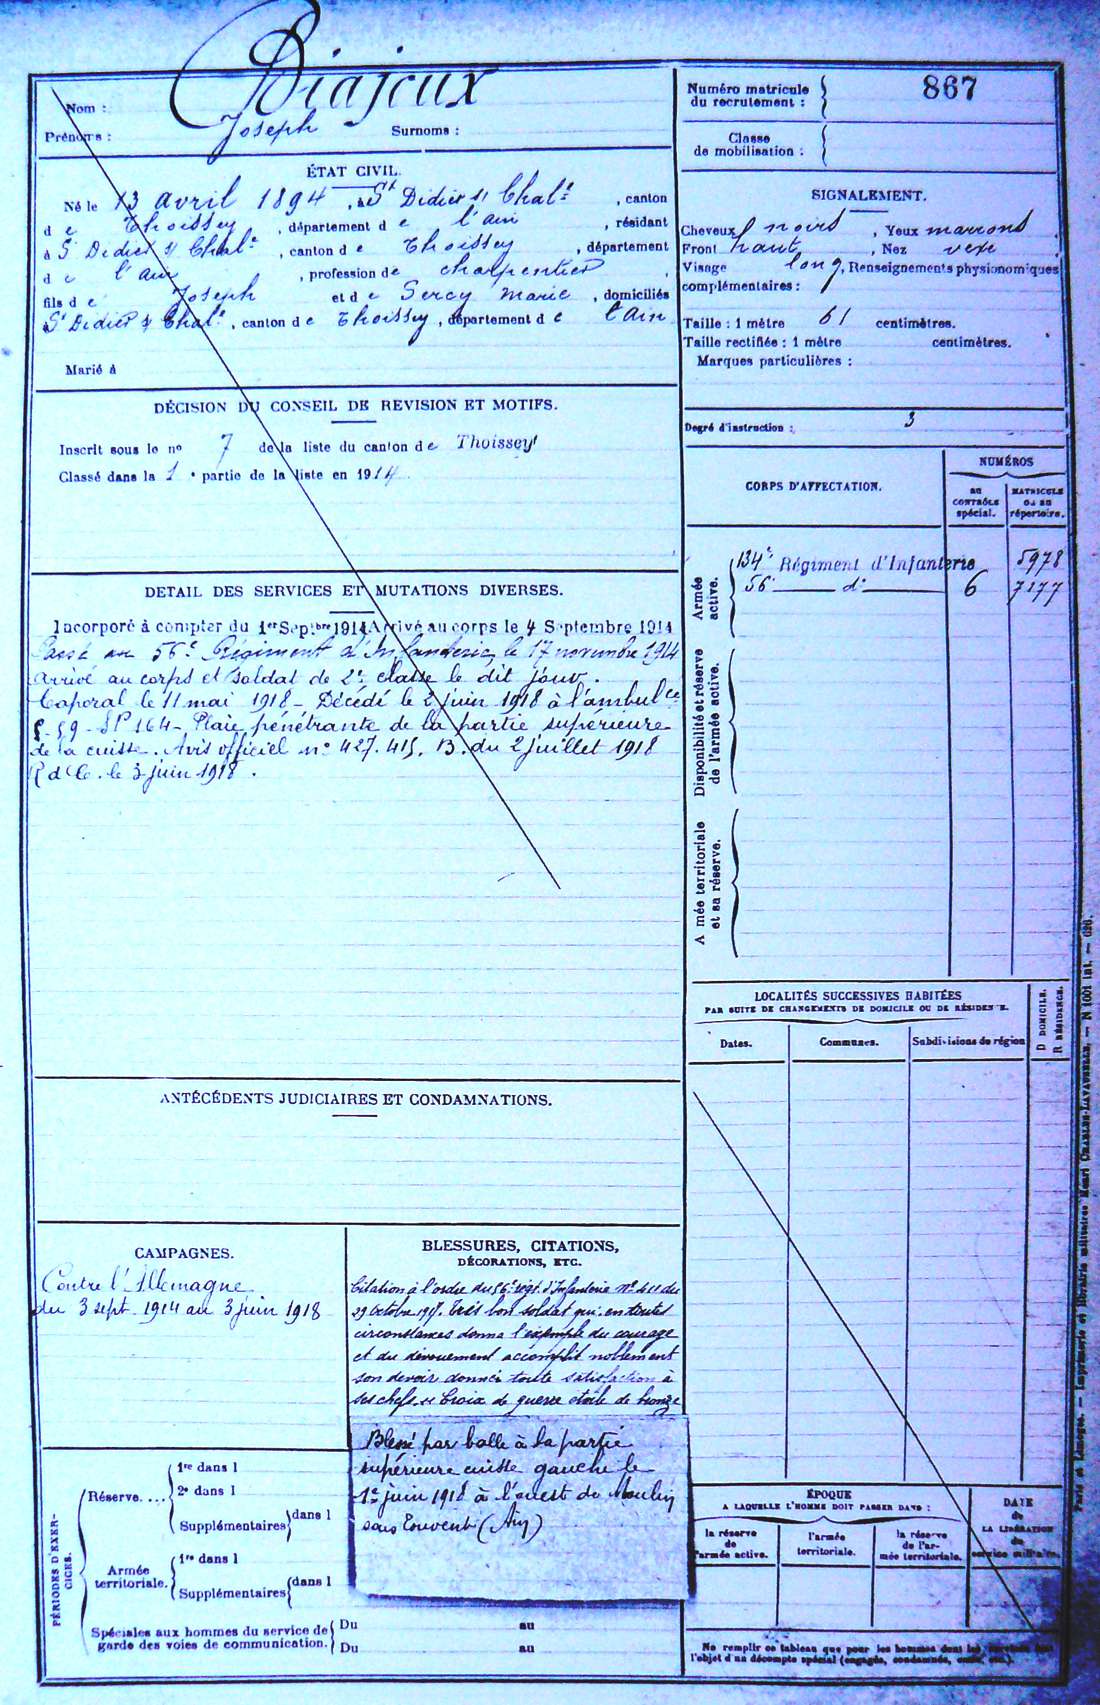 Nom : Biajoux
Prénoms : Joseph Surnoms :
ÉTAT CIVIL.
Né le 13 avril 1894, à St Didier s/ Chale, canton
de Thoissey, département de l'ain, résidant
à St Didier s/ Chale, canton de Thoissey, département
de l'ain, profession de charpentier,
fils de Joseph et de Sercy Marie, domiciliés
St Didier s/ Chale, canton de Thoissey, département de l'ain
Marié à
DÉCISION DU CONSEIL DE REVISION ET MOTIFS.
Inscrit sous le no 7 de la liste du canton de Thoissey
Classé dans la 1e partie de la liste en 1914
DETAIL DES SERVICES ET MUTATIONS DIVERSES.
Incorporé à compter du 1er Septbre 1914 Arrivé au corps le 4 Septembre 1914
Passé au 56e Régiment d'Infanterie, le 17 novembre 1914
Arrivé au corps et soldat de 2e classe le dit jour.
Caporal le 11 mai 1918 - Décédé le 2 juin 1918 à l'ambulce
5-59 - SP 164 - Plaie pénétrante de la partie supérieure
de la cuisse. Avis officiel no 427.415. B. du 2 juillet 1918
R d C. le 3 juin 1918.
ANTÉCÉDENTS JUDICIAIRES ET CONDAMNATIONS.
CAMPAGNES.
Contre l'Allemagne
du 3 sept 1914 au 3 juin 1918
BLESSURES, CITATIONS,
DÉCORATIONS, ETC.
Citation à l'ordre du 56e régt d'Infanterie No 411 du
29 Octobre 1917. Très bon soldat qui en toutes
circonstances donna l'exemple du courage
et du dévouement accomplit noblement
son devoir donner toute satisfaction à
ses chefs. Croix de guerre étoile de bronze
Blessé par balle à la partie
supérieure cuisse gauche le
1er juin 1918 à l'ouest de Moulin
sous Touvent (Ain)
PÉRIODES D'EXERCICES.
Réserve....
1re dans l
2e dans l
Supplémentaires dans l
Armée
territoriale.
1re dans l
Supplémentaires dans l
Spéciales aux hommes du service de
garde des voies de communication.
Du au
Du au
Numéro matricule
du recrutement : 867
Classe
de mobilisation :
SIGNALEMENT.
Cheveux noirs, Yeux marrons
Front haut, Nez vexe
Visage long, Renseignements physionomiques
complémentaires :
Taille : 1 mètre 61 centimètres.
Taille rectifiée : 1 mètre centimètres.
Marques particulières :
Degré d'instruction : 3
CORPS D'AFFECTATION.
NUMÉROS
au
CONTRÔLE
spécial.
MATRICULE
ou au
répertoire.
Armée
active.
134e Régiment d'Infanterie 5978
56e do 6 7177
Disponibilité et réserve
de l'armée active.
A mée territoriale
et sa réserve.
LOCALITÉS SUCCESSIVES HABITÉES
PAR SUITE DE CHANGEMENTS DE DOMICILE OU DE RÉSIDENCE.
Dates.
Communes.
Subdivisions de région
D DOMICILE.
R RÉSIDENCE.
ÉPOQUE
A LAQUELLE L'HOMME DOIT PASSER DANS :
la réserve
de
l'armée active.
l'armée
territoriale.
la réserve
de l'ar-
mée territoriale.
DATE
de
LA LIBÉRATION
du
service militaire.
Ne remplir ce tableau que pour les hommes dont les services font
l'objet d'un décompte spécial (engagés, condamnés, omis, etc.).
Paris et Limoges. — Imprimerie et librairie militaires Henri CHARLES-LAVAUZELLE. — N 1001 int. — 626.